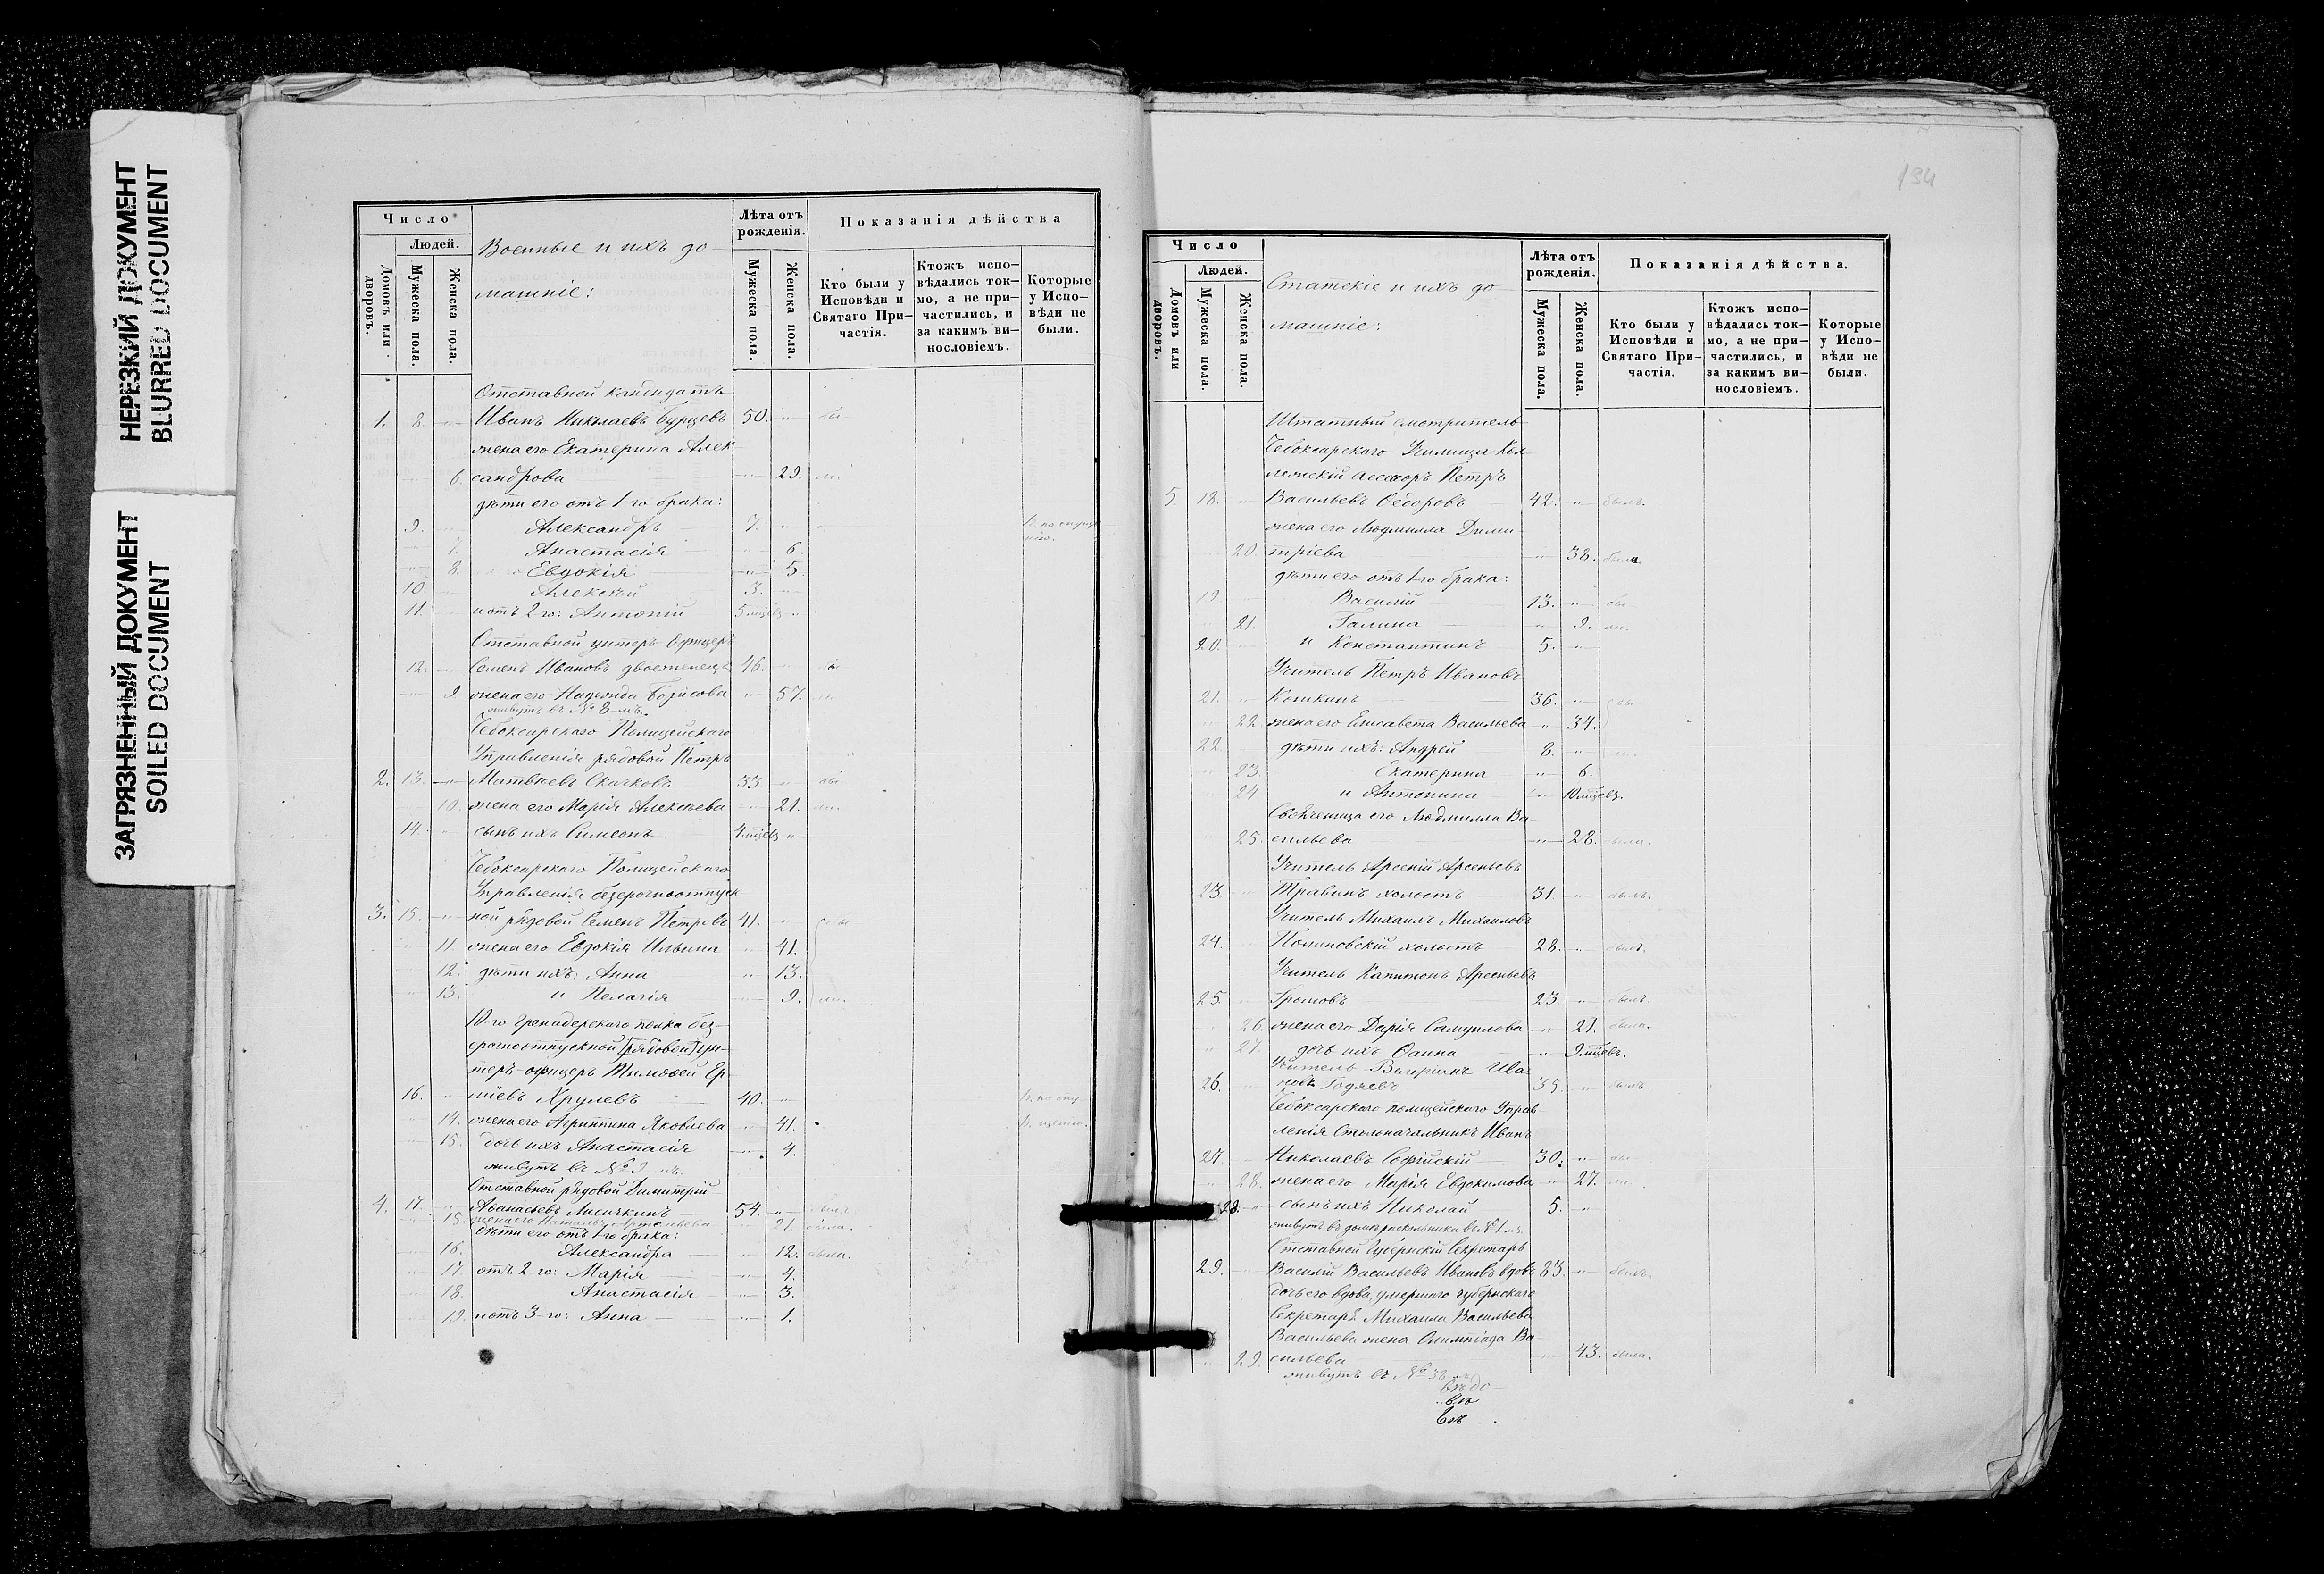 НЕРЕЗКИЙ ДОКУМЕНТ
BLURRED DOCUMENT
ЗАГРЯЗНЕННЫЙ ДОКУМЕНТ
SOILED DOCUMENT
Число
Людей.
Домовъ или дворовъ.
Мужеска пола.
Женска пола.
Военные и ихъ до-
машніе:
Лѣта отъ
рожденія.
Мужеска пола.
Женска пола.
Показанія дѣйства
Кто были у
Исповѣди и
Святаго При-
частія.
Ктожъ испо-
вѣдались ток-
мо, а не при-
частились, и
за какимъ ви-
нословіемъ.
Которые
у Испо-
вѣди не
были.
Отставной кандидатъ
1. 8. Иванъ Николаевъ Бурцевъ 50.
жена его Екатерина Алек
6. сандрова 29.
дѣти его отъ 1-го брака:
9. Александръ 7.
7. Анастасія 6.
8. Евдокія 5.
10. Алексѣй 3.
11. и отъ 2-го: Антоній 5 мѣсяц
Отставной унтеръ Офицеръ
12. Семенъ Ивановъ двоеженецъ 46.
9. жена его Надежда Борисова 57.
живутъ въ № 8-мъ.
Чебоксарскаго Полицейскаго
Управленія рядовой Петръ
2. 13. Матвѣевъ Скачковъ 33.
10. жена его Марія Алексѣева 21.
14. сынъ ихъ Симеонъ 4 мѣсяц
Чебоксарскаго Полицейскаго
Управленія безсрочноотпуск
3. 15. ной рядовой Семенъ Петровъ 41.
11. жена его Евдокія Ильина 41.
12. дѣти ихъ: Анна 13.
13. и Пелагія 9.
10-го Гренадерскаго полка без-
срочноотпускной (рядовой) ун-
теръ-офицеръ Тимофей Ер-
16. Хрулевъ 40.
14. жена его Агриппина Яковлева 41.
15. дочь ихъ Анастасія 4.
живутъ въ № 9 мъ.
Отставной рядовой Димитрій
4. 17. Аѳанасьевъ Лисичкинъ 54.
15. жена его 21. была.
дѣти его отъ 1-го брака:
16. Александра 12. была.
17. отъ 2-го: Марія 4.
18. Анастасія 3.
19. и отъ 3-го: Анна 1.
134
Число
Людей.
Домовъ или дворовъ.
Мужеска пола.
Женска пола.
Статскіе и ихъ до-
машніе:
Лѣта отъ
рожденія.
Мужеска пола.
Женска пола.
Показанія дѣйства.
Кто были у
Исповѣди и
Святаго При-
частія.
Ктожъ испо-
вѣдались ток-
мо, а не при-
частились, и
за какимъ ви-
нословіемъ.
Которые
у Испо-
вѣди не
были.
Штатный смотритель
Чебоксарскаго Училища Кол-
лежскій ассесоръ Петръ
5 18. Васильевъ Ѳедоровъ 42. былъ.
жена его Людмилла Дими
20. тріева 38. была.
дѣти его отъ 1-го брака:
19 Василій 13.
21. Галина 9.
20. и Константинъ 5.
Учитель Петръ Ивановъ
21. Кошкинъ 36.
22. жена его Елисавета Васильева 34.
22. дѣти ихъ: Андрей 8.
23. Екатерина 6.
24 и Антонина 10 мѣсяц.
Своячница его Людмилла Ва-
25. сильева 28. была.
Учитель Арсеній Арсеньевъ
23. Травинъ холостъ 31. былъ.
Учитель Михаилъ Михаиловъ
24. Полиновскій холостъ 28. былъ.
Учитель Капитонъ Арсеньевъ
25. Громовъ 23. былъ.
26. жена его Дарія Самуилова 21. была.
27. дочь ихъ Фаина 9 мѣсяц.
Учитель Валеріанъ Ива
26. новъ 35. былъ.
Чебоксарскаго полицейскаго Управ-
ленія Столоначальникъ Иванъ
27 Николаевъ Софійскій 30.
28. жена его Марія Евдокимова 27.
28. сынъ ихъ Николай 5.
живутъ въ домѣ раскольника въ № 1 мъ.
Отставной Губернскій Секретарь
29. Василій Васильевъ Ивановъ вдовъ 83. былъ.
дочь его вдова, умершаго губернскаго
Секретаря Михаила Васильева
Васильева жена Олимпіада Ва-
29. сильева 43. была.
живутъ въ № 38